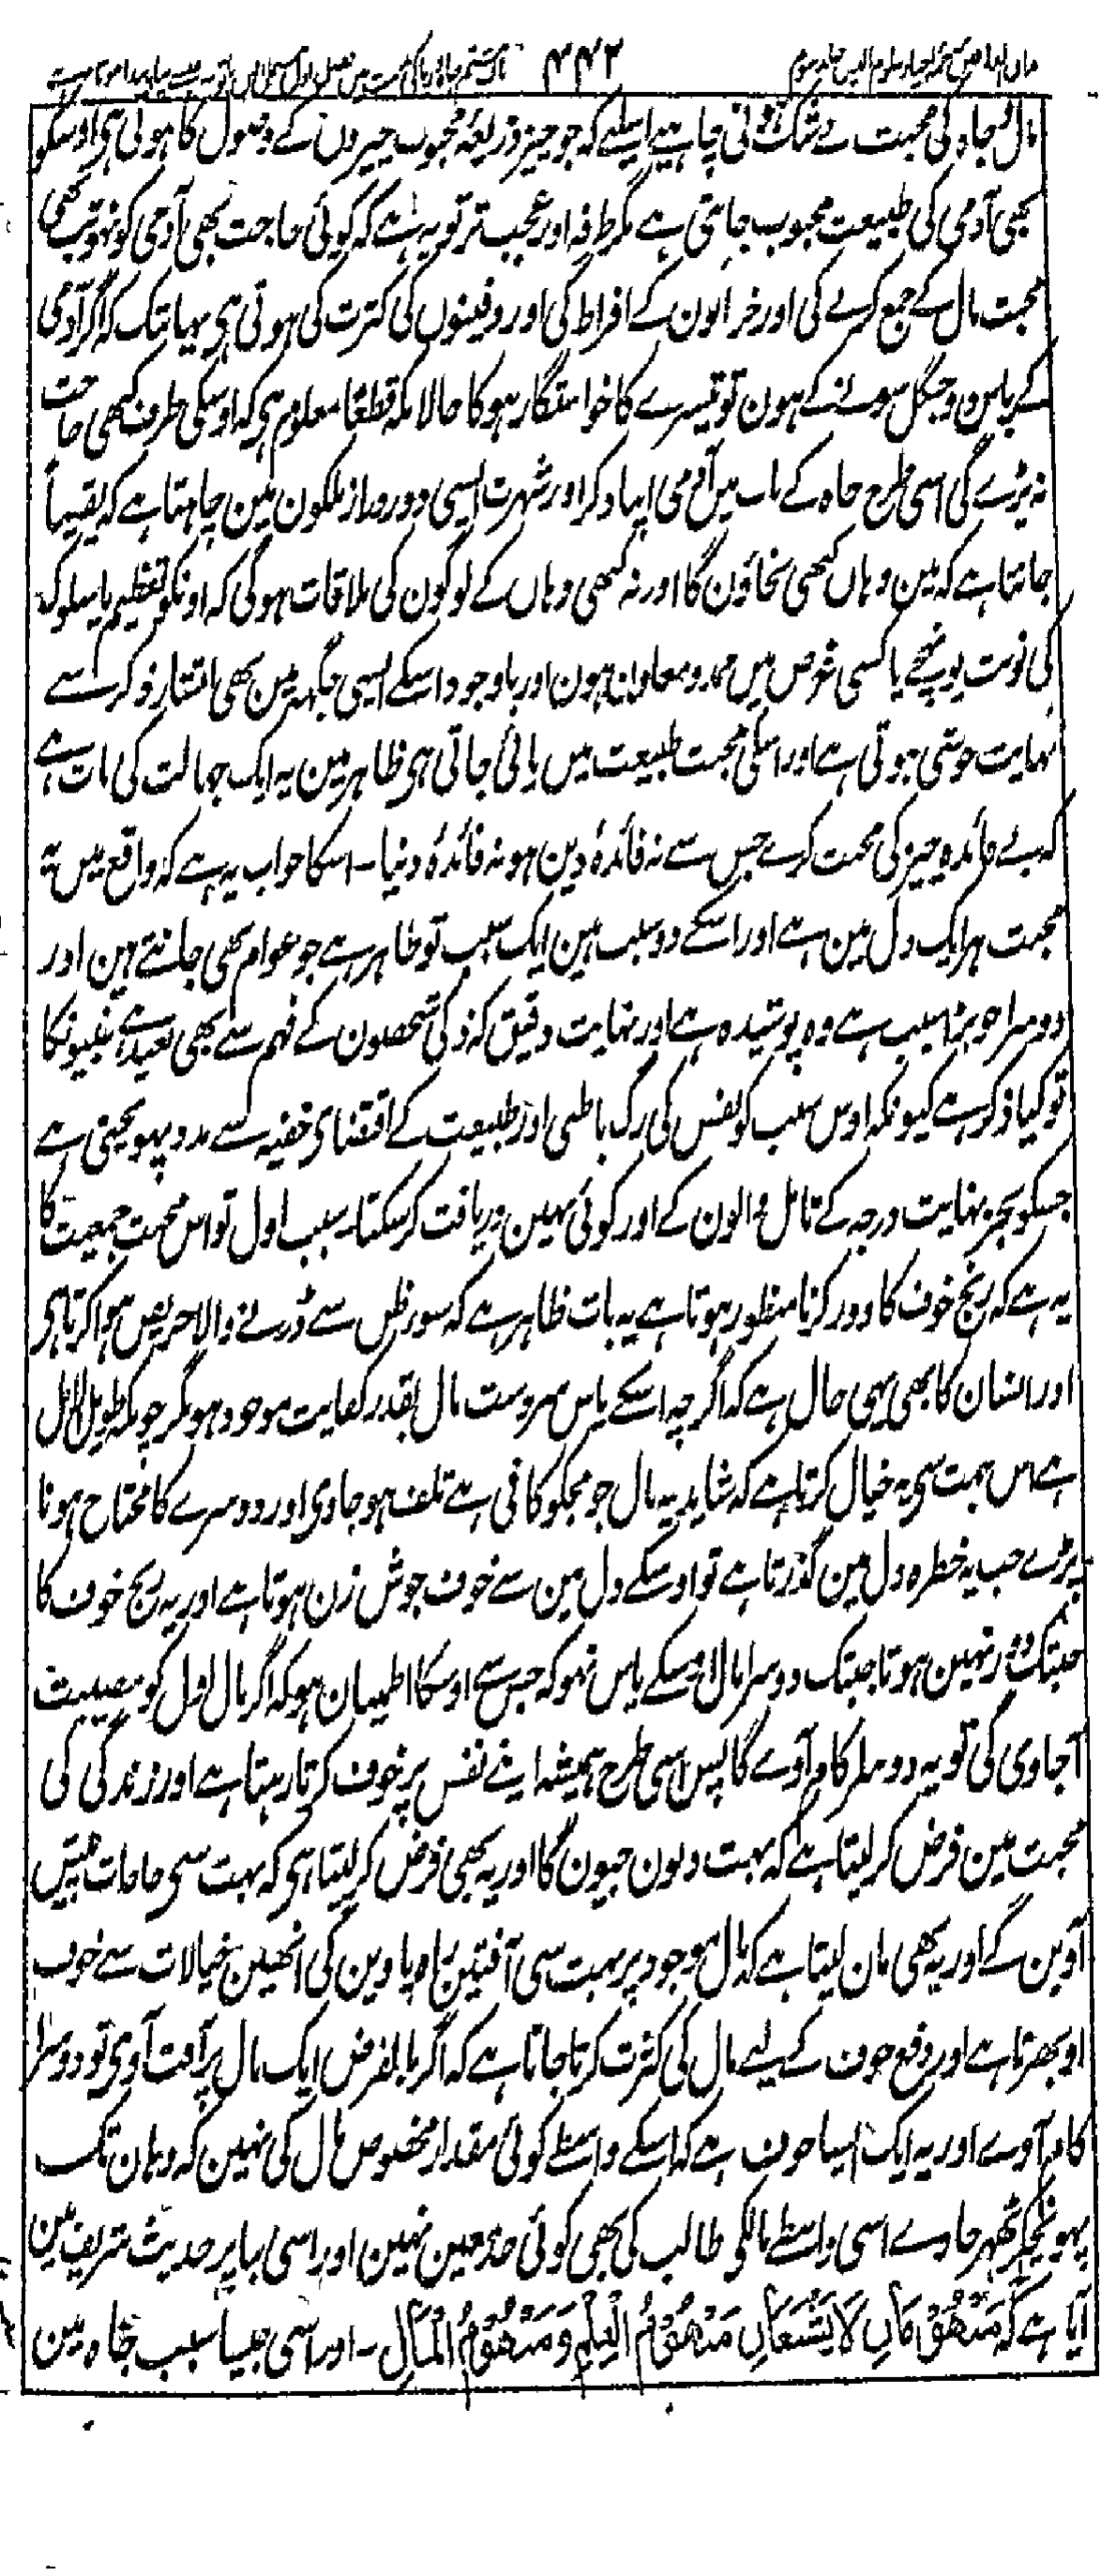 ۴۴۲
مال و جاہ کی محبت بے شک ہونی چاہیے اسلیے کہ جو چیز ذریعۂ محبوب چیزوں کے وصول کا ہوتی ہی اوسکو
بھی آدمی کی طبیعت محبوب جانتی ہے مگر طرفہ اور عجیب تر تو یہ ہے کہ کوئی حاجت بھی آدمی کو نہو تب بھی
محبت مال کے جمع کرنے کی اور خزانون کے افراط کی اور دفینوں کی کثرت کی ہوتی ہی یہانتک کہ اگر آدمی
کے پاس دو جنگل سونے کے ہون تو تیسرے کا خواستگار ہوگا حالانکہ قطعًا معلوم ہی کہ اوسکی طرف کبھی حاجت
نہ پڑے گی اسی طرح جاہ کے باب میں آدمی اپنا ذکر اور شہرت ایسی دور دراز ملکون مین چاہتا ہے کہ یقیناً
جانتا ہے کہ مین وہاں کبھی نجاؤن گا اور نہ کبھی وہاں کے لوگون کی ملاقات ہوگی کہ اونکو تعظیم یا سلوک
کی نوبت پہونچے یا کسی غرض میں ممد و معاون ہون اور باوجود اسکے ایسی جگہہ مین بھی انتشار ذکر سے
نہایت خوشی ہوتی ہے اور اسکی محبت طبیعت میں پائی جاتی ہی ظاہر مین یہ ایک جہالت کی بات ہے
کہ بے فائدہ چیز کی محبت کرے جس سے نہ فائدۂ دین ہو نہ فائدۂ دنیا۔ اسکا جواب یہ ہے کہ واقع میں یہ
محبت ہر ایک دل مین ہے اور اسکے دو سبب ہین ایک سبب تو ظاہر ہے جو عوام بھی جانتے ہین اور
دوسرا جو بڑا سبب ہے وہ پوشیدہ ہے اور نہایت دقیق کہ ذکی شخصون کے فہم سے بھی بعید ہے غبیونکا
تو کیا ذکر ہے کیونکہ اوس سبب کو نفس کی رگ باطنی اور طبیعت کے اقتضای خفیہ سے مدد پہونچتی ہے
جسکو بجز نہایت درجہ کے تامل والون کے اور کوئی نہین دریافت کرسکتا۔ سبب اول تو اس محبت جمعیت کا
یہ ہے کہ رنج خوف کا دور کرنا منظور ہوتا ہے یہ بات ظاہر ہے کہ سوء ظن سے ڈرنے والا حریص ہوا کرتا ہی
اور انسان کا بھی یہی حال ہے کہ اگرچہ اسکے پاس سردست مال بقدر کفایت موجود ہو مگر چونکہ طویل الامل
ہے اس جہت سی یہ خیال کرتا ہے کہ شاید یہ مال جو مجکو کافی ہے تلف ہو جاوی اور دوسرے کا محتاج ہونا
پڑے جب یہ خطرہ دل مین گذرتا ہے تو اوسکے دل مین سے خوف جوش زن ہوتا ہے اور یہ رنج خوف کا
جبتک دور نہین ہوتا جبتک دوسرا مال اوسکے پاس نہو کہ جس سے اوسکا اطمینان ہو کہ اگر مال اول کو مصیبت
آجاوی گی تو یہ دوسرا کام آوے گا پس اسی طرح ہمیشہ اپنے نفس پر خوف کرتا رہتا ہے اور زندگی کی
محبت مین فرض کرلیتا ہے کہ بہت دنون جیون گا اور یہ بھی فرض کرلیتا ہی کہ بہت سی حاجات پیش
آوین گے اور یہ بھی مان لیتا ہے کہ مال موجود پر بہت سی آفتین راہ پاوین گی انھین خیالات سے خوف
اوبھرتا ہے اور دفع خوف کے لیے مال کی کثرت کرتا جاتا ہے کہ اگر بالفرض ایک مال پر آفت آوی تو دوسرا
کام آوے اور یہ ایک ایسا خوف ہے کہ اسکے واسطے کوئی مقدار مخصوص مال کی نہین کہ وہان تک
پہونچکر ٹھہر جاوے اسی واسطے مال کی طالب کی بھی کوئی حد معین نہین اور اسی بنا پر حدیث شریف مین
آیا ہے کہ مَنْهُوْمَانِ لَا يَشْبَعَانِ مَنْهُوْمُ الْعِلْمِ وَمَنْهُوْمُ الْمَالِ۔ اور اسی جیسا سبب جاہ مین